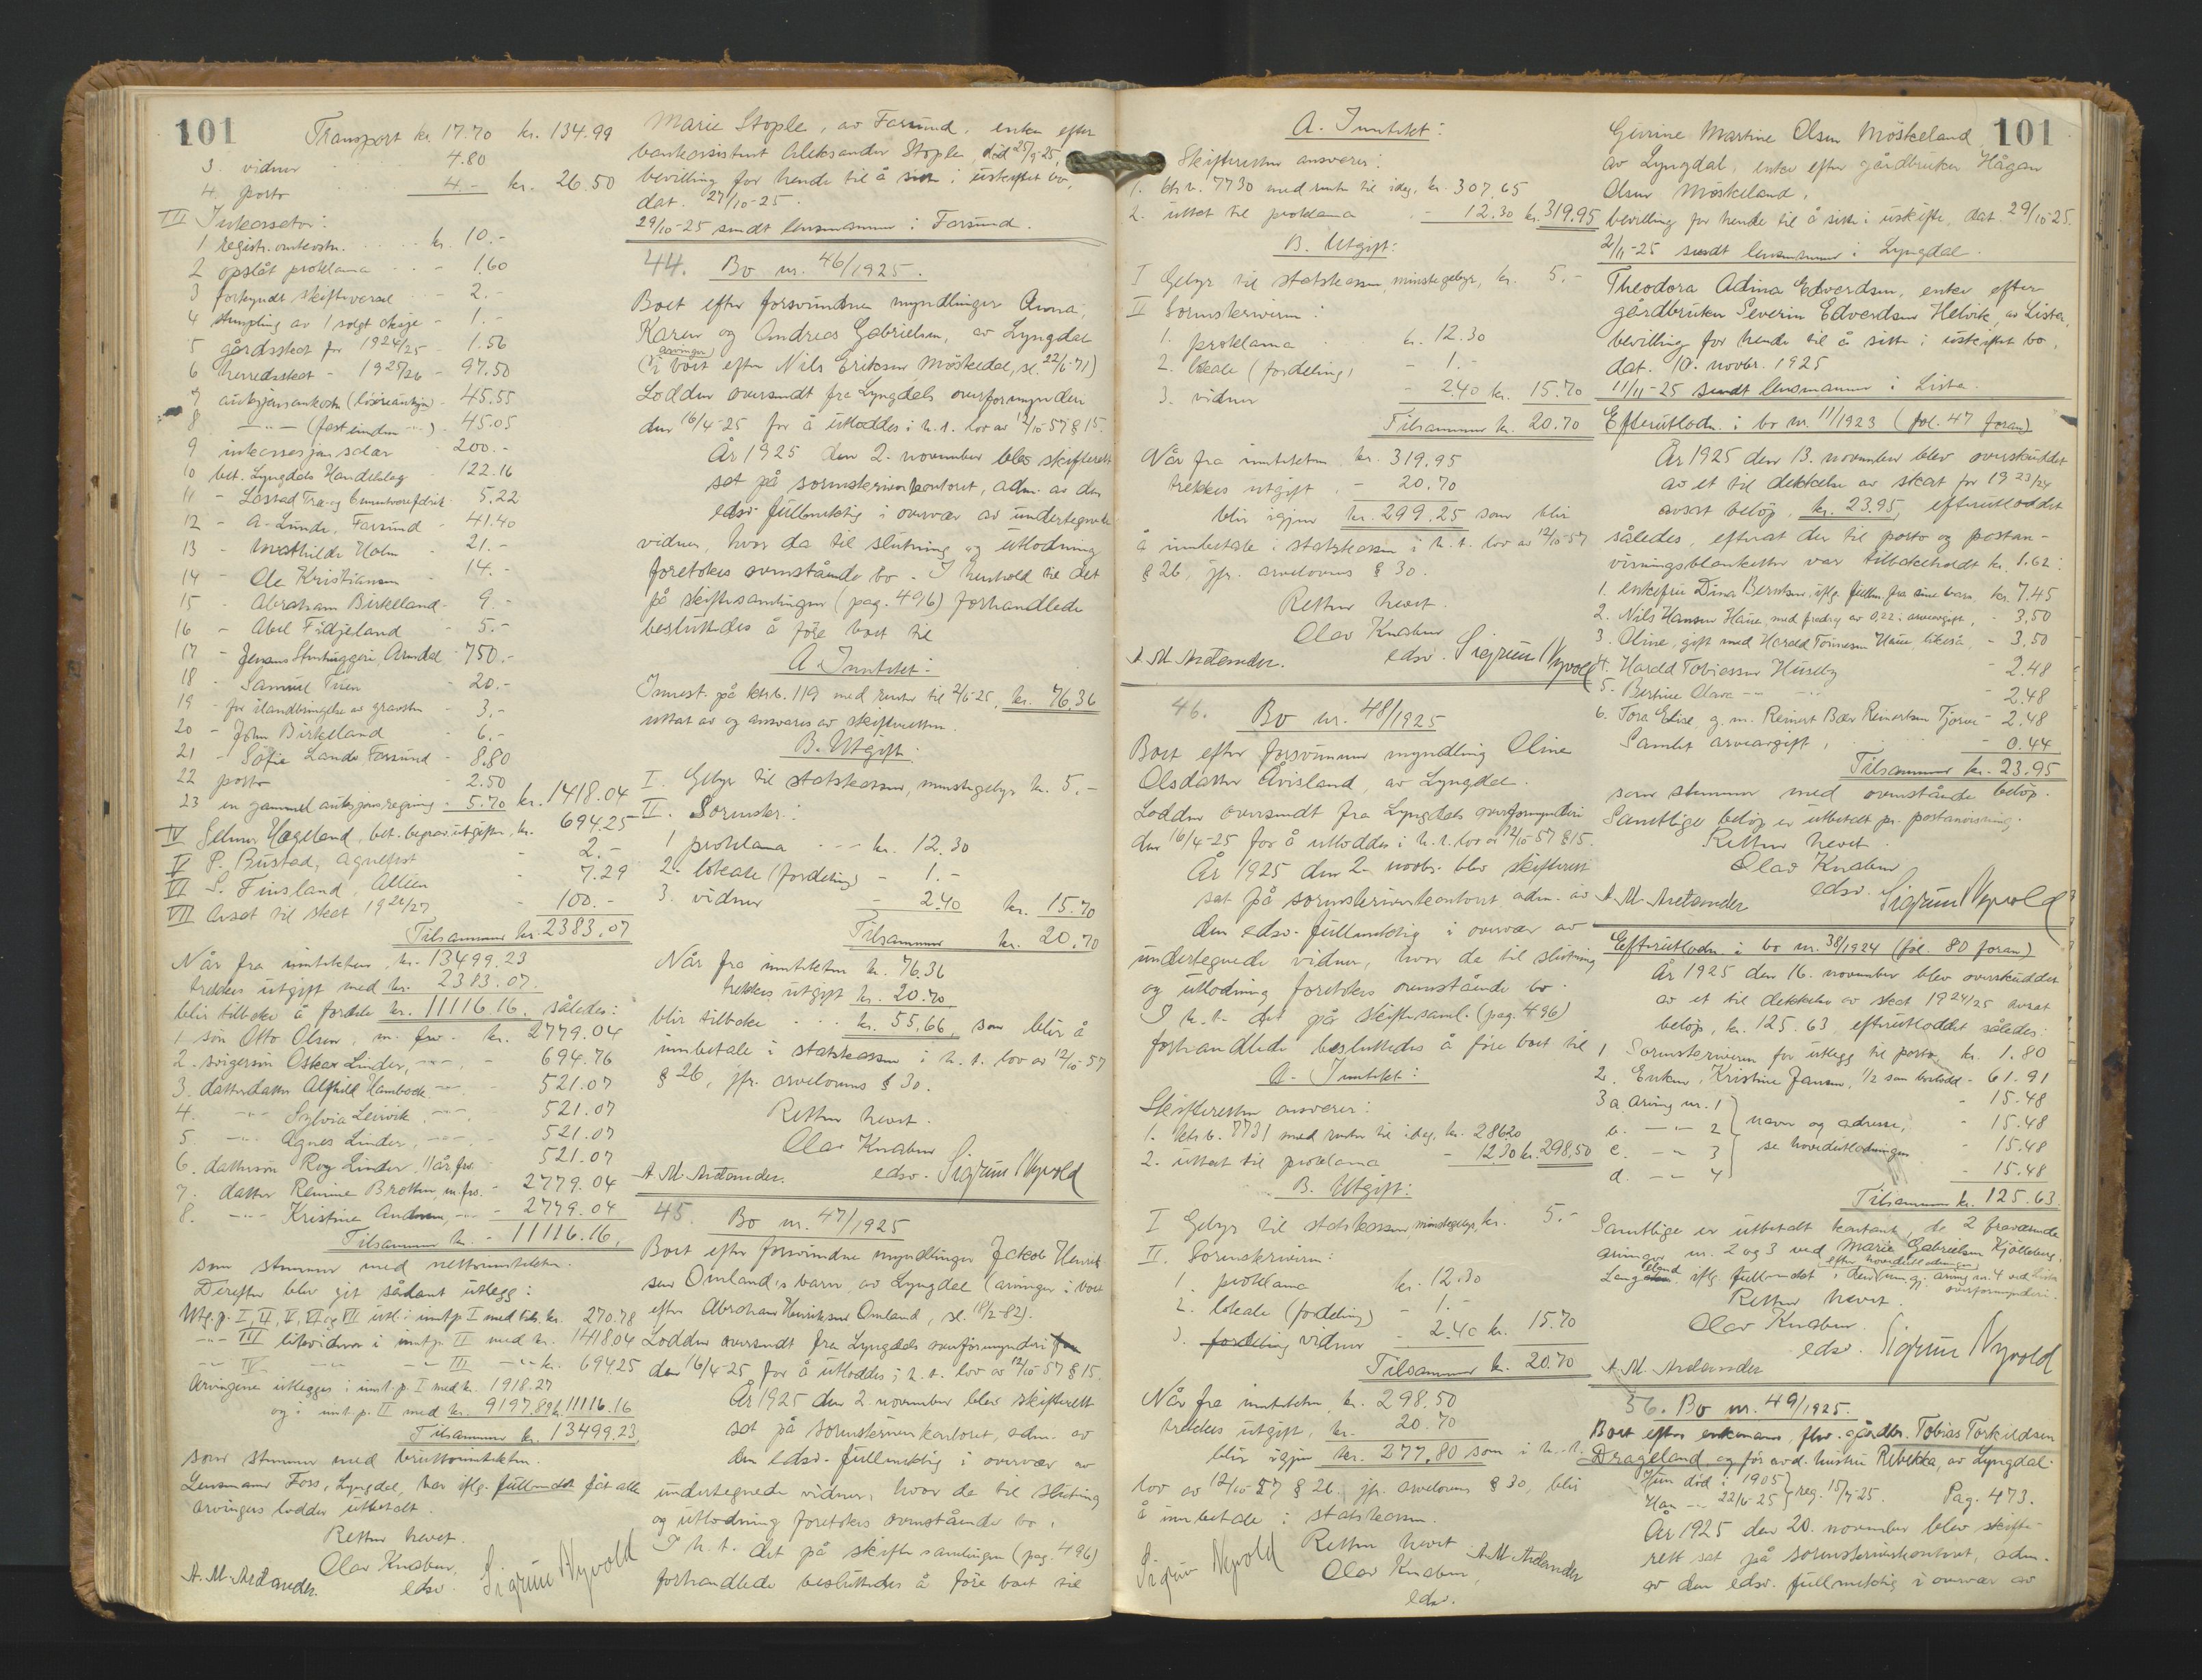 101
Transport kr. 17.70 kr. 134.99
3. vidner 4.80
4. porto 4.- kr. 26.50
III Inkassator:
1 registr. omkostn. kr. 10.-
2 opslåt proklama - 1.60
3 forkyndt skiftevarsel - 2.-
4 stempling av 1 solgt aksje - 1.-
5 gårdsskat for 1924/25 - 1.56
6 herredsskat - 1925/26 - 97.50
7 auksjonsomkostn. (løsøreauksjon) - 45.55
8 -"- (fast eiendom -"-) - 45.05
9 inkassasjonssalær - 200.-
10 bet. Lyngdals Handelslag - 122.16
11 - Løstad Træ- og Cementvarefabrik - 5.22
12 - A. Lunde, Farsund - 41.40
13 - Mathilde Holm - 21.-
14 - Ole Kristiansen - 14.-
15 - Abraham Birkeland - 9.-
16 - Abel Fidjeland - 5.-
17 - Jensens Stenhuggeri, Arendal - 750.-
18 - Samuel Trien - 20.-
19 - for ilandbringelse av gravsten - 3.-
20 - John Birkeland - 6.-
21 - Sofie Lande Farsund - 8.80
22 porto - 2.50
23 en gammel auksjonsregning - 5.70 kr. 1418.04
IV Selmer Hageland, bet. begrav. utgifter, kr. 694.25
V P. Bustad, Agnefest - 2.-
VI S. Finsland, Alleen - 7.29
VII Avsat til skat 1926/27 - 100.-
Tilsammen kr. 2383.07
Når fra inntekten kr. 13499.23
trekkes utgift med kr. 2383.07
blir tilbake å fordele kr. 11116.16, således:
1 søn Otto Olsen, m. frv. kr. 2779.04
2. svigersøn Oskar Linder, -"- - 694.76
3. datterdatter Alfhild Hambock -"- - 521.07
4. -"- Sylvia Leirvik -"- - 521.07
5. -"- Agnes Linder, -"- - 521.07
6. dattersøn Roy Linder 11 år frv. - 521.07
7. datter Remine Bratten, m. frv. - 2779.04
8. -"- Kristine Andersen, -"- - 2779.04
Tilsammen kr. - 11116.16,
som stemmer med nettoinntekten.
Derefter blev git sådant utlegg:
Utg. p. I, II, V, VI og VII utl. i inntp. I med tils. kr. 270.78
-"- III likvideres i inntp. II med kr. 1418.04
-"- IV -"- -"- III -"- kr. 694.25
Arvingene utlegges i innt. p. I med kr. 1918.27
og i innt. p. II med kr. 9197.89 kr. 11116.16
Tilsammen kr. 13499.23,
som stemmer med bruttoinntekten.
Lensmann Foss, Lyngdal, har iflg. fullmakt fåt alle
arvingers lodder utbetalt.
Retten hevet.
Olav Knaben,
edsv.
A. M. Arctander.
Sigrun Nyvold
Marie Stople, av Farsund, enke efter
bankassistent Aleksander Stople, død 25/9-25,
bevilling for hende til å sitte i uskiftet bo,
dat. 27/10-25.
29/10-25 sendt lensmannen i Farsund.
44. Bo nr. 46/1925.
Boet efter forsvundne myndlinger Anna,
Karen og Andreas Gabrielsen, av Lyngdal
(arvinger i boet efter Nils Eriksen Møskedal, sl. 22/6-71)
Lodden oversendt fra Lyngdals overformynderi
den 16/4-25 for å utloddes i h. t. lov av 12/10-57 § 15.
År 1925 den 2. november blev skifterett
sat på sorenskriverkontoret, adm. av den
edsv. fullmektig i overvær av undertegnede
vidner, hvor da til slutning og utlodning
foretokes ovenstående bo. I henhold til det
på skiftesamlingen (pag. 496) forhandlede
besluttedes å føre boet til
A. Inntekt:
Innest. på ktrb. 119 med renter til 2/11-25, kr. 76.36
uttat av og ansvares av skifteretten.
B. Utgift:
I. Gebyr til statskassen, minstegebyr kr. 5.-
II. Sorenskr.:
1 proklama - - - kr. 12.30
2. lokale (fordeling) - 1.-
3. vidner - 2.40 kr. 15.70
Tilsammen kr. 20.70
Når fra inntekten kr. 76.36
trekkes utgift kr. 20.70
blir tilbake - - - kr. 55.66, som blir å
innbetale i statskassen i h. t. lov av 12/10-57
§ 26, jfr. arvelovens § 30.
Retten hevet.
Olav Knaben
edsv. Sigrun Nyvold
A. M. Arctander.
45. Bo nr. 47/1925
Boet efter forsvundne myndlinger Jakob Henrik-
sen Omlands barn av Lyngdal (arvinger i boet
efter Abraham Henriksen Omland, sl. 18/2-82).
Lodden oversendt fra Lyngdals overformynderi
den 16/4-25 for å utloddes i h. t. lov av 12/10-57 § 15.
År 1925 den 2. november blev skifterett
sat på sorenskriverkontoret, adm. av
den edsv. fullmektig i overvær av
undertegnede vidner, hvor da til slutning
og utlodning foretokes ovenstående bo.
I h. t. det på skiftesamlingen (pag. 496)
forhandlede besluttedes å føre boet til
A. Inntekt:
Skifteretten ansvarer:
1. ktr. b. 7730 med renter til idag, kr. 307.65
2. uttat til proklama - 12.30 kr. 319.95
B. Utgift:
I Gebyr til statskassen, minstegebyr, kr. 5.-
II Sorenskriveren:
1. proklama kr. 12.30
2. lokale (fordeling) - 1.-
3. vidner - 2.40 kr. 15.70
Tilsammen kr. 20.70
Når fra inntekten kr. 319.95
trekkes utgift - 20.70
blir igjen kr. 299.25 som blir
å innbetale i statskassen i h. t. lov av 12/10-57
§ 26, jfr. arvelovens § 30.
Retten hevet.
Olav Knaben
edsv. Sigrun Nyvold
A. M. Arctander.
46. Bo nr. 48/1925
Boet efter forsvunnen myndling Oline
Olsdatter Åvisland, av Lyngdal.
Lodden oversendt fra Lyngdals overformynderi
den 16/4-25 for å utloddes i h. t. lov av 12/10-57 § 15.
År 1925 den 2. novbr. blev skifterett
sat på sorenskriverkontoret adm. av
den edsv. fullmektig i overvær av
undertegnede vidner, hvor da til slutning
og utlodning foretokes ovenstående bo.
I h. t. det på skiftesaml. (pag. 496)
forhandlede besluttedes å føre boet til
A. Inntekt:
Skifteretten ansvarer:
1. ktr. b. 7731 med renter til idag, kr. 286.20
2. uttat til proklama - 12.30 kr. 298.50
B. Utgift:
I Gebyr til statskassen minstegebyr, kr. 5.-
II. Sorenskriveren:
1. proklama kr. 12.30
2. lokale (fordeling) - 1.-
3. fordeling vidner - 2.40 kr. 15.70
Tilsammen kr. 20.70
Når fra inntekten kr. 298.50
trekkes utgift, kr. 20.70
blir igjen kr. 277.80 som i h. t.
lov av 12/10-57 § 26, jfr. arvelovens § 30, blir
å innbetale i statskassen.
Retten hevet.
Olav Knaben,
edsv.
Sigrun Nyvold
A. M. Arctander
101
Gurine Martine Olsen Møskeland
av Lyngdal, enke efter gårdbruker Hågan
Olsen Møskeland,
bevilling for hende til å sitte i uskifte, dat. 29/10-25.
2/11-25 sendt lensmannen i Lyngdal.
Theodora Adina Edvardsen, enke efter
gårdbruker Severin Edvardsen Helvik, av Lista,
bevilling for hende til å sitte i uskiftet bo,
dat. 10. novbr. 1925
11/11-25 sendt lensmannen i Lista.
Efterutlodn. i bo nr. 11/1923 (fol. 47 foran)
År 1925 den 13. november blev overskuddet
av et til dekkelse av skat for 1923/24
avsat beløp, kr. 23.95, efterutloddet
således, efterat der til porto og postan-
visningsblanketter var tilbakeholdt kr. 1.62:
1. enkefru Dina Berntsen, iflg. fullm. fra sine barn kr. 7.45
2. Nils Hansen Haue, med fradrag av 0,22 i arveavgift, - 3.50
3. Oline, gift med Harald Tønnesen Haue, likeså, - 3.50
4. Harald Tobiassen Huseby - 2.48
5. Bertine Olava -"- - 2.48
6. Tora Elise, g. m. Reinert Bæv Reinertsen Tjørve - 2.48
Samlet arveavgift, - 0.44
Tilsammen kr. 23.95
som stemmer med ovenstående beløp.
Samtlige beløp er utbetalt pr. postanvisning.
Retten hevet.
Olav Knaben
edsv. Sigrun Nyvold
A. M. Arctander
Efterutlodn. i bo nr. 38/1924 (fol. 80 foran)
År 1925 den 16. november blev overskuddet
av et til dekkelse av skat 1924/25 avsat
beløp, kr. 125.63, efterutloddet således:
1 Sorenskriveren for utlegg til porto kr. 1.80
2. Enken, Kristine Jansen, 1/2 som boslodd - 61.91
3 a. arving nr. 1 - 15.48
b. -"- 2 navn og adresse, - 15.48
c. -"- 3 se hovedutlodningen - 15.48
d. -"- 4 - 15.48
Tilsammen kr. 125.63.
Samtlige er utbetalt kontant, de 2 fraværende
arvinger nr. 2 og 3 ved Marie Gabrielsen Kjølleberg,
Langeland iflg. fullmakt efter hovedutlodningen, arving nr. 4 ved Lista
overformynderi.
Retten hevet.
Olav Knaben.
edsv. Sigrun Nyvold
A. M. Arctander
56. Bo nr. 49/1925.
Boet efter enkemann, fhv. gårdbr. Tobias Torkildsen
Drageland og før avd. hustru Rebekka, av Lyngdal.
Hun død i 1905
Han -"- 22/6-25 reg. 15/7-25. Pag. 473.
År 1925 den 20. november blev skifte-
rett sat på sorenskriverkontoret, adm.
av den edsv. fullmektig i overvær av